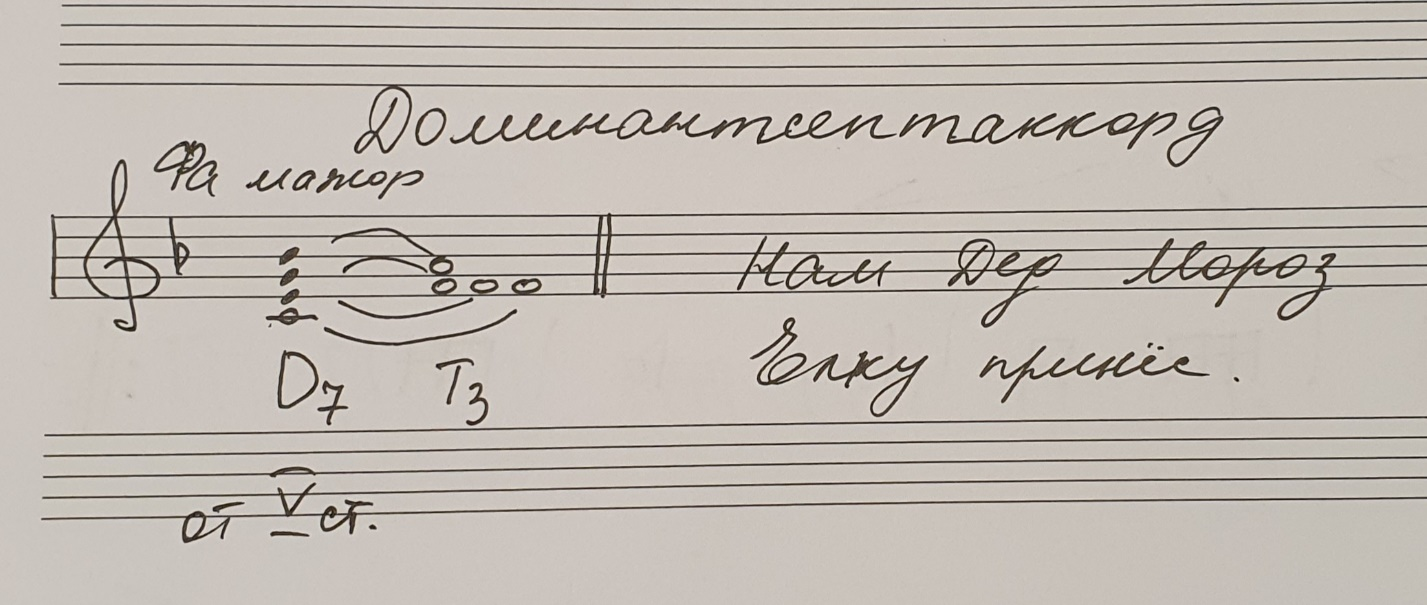 Доминантсептаккорд
Фа мажор
Нам Дед Мороз
Ёлку принёс.
D7 T3
от V ст.